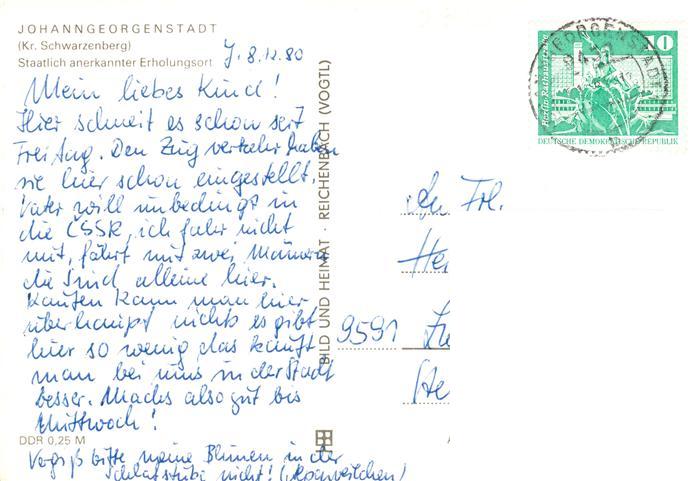 JOHANNGEORGENSTADT
(Kr. Schwarzenberg)
Staatlich anerkannter Erholungsort
J. 8.12.80
Mein liebes Kind!
Hier schneit es schon seit
Freitag. Den Zugverkehr haben
sie hier schon eingestellt.
Vater will unbedingt in
die ČSSR, ich fahr nicht
mit, fährt mit zwei Männern
die sind alleine hier.
Kaufen kann man hier
überhaupt nichts es gibt
hier so wenig das kauft
man bei uns in der Stadt
besser. Machs also gut bis
Mittwoch!
Vergiß bitte meine Blumen in der
Schlafstube nicht! (Alpenveilchen)
DDR 0,25 M
BILD UND HEIMAT · REICHENBACH (VOGTL)
10
Berlin, Rathausstraße
DEUTSCHE DEMOKRATISCHE REPUBLIK
An Frl.
9591